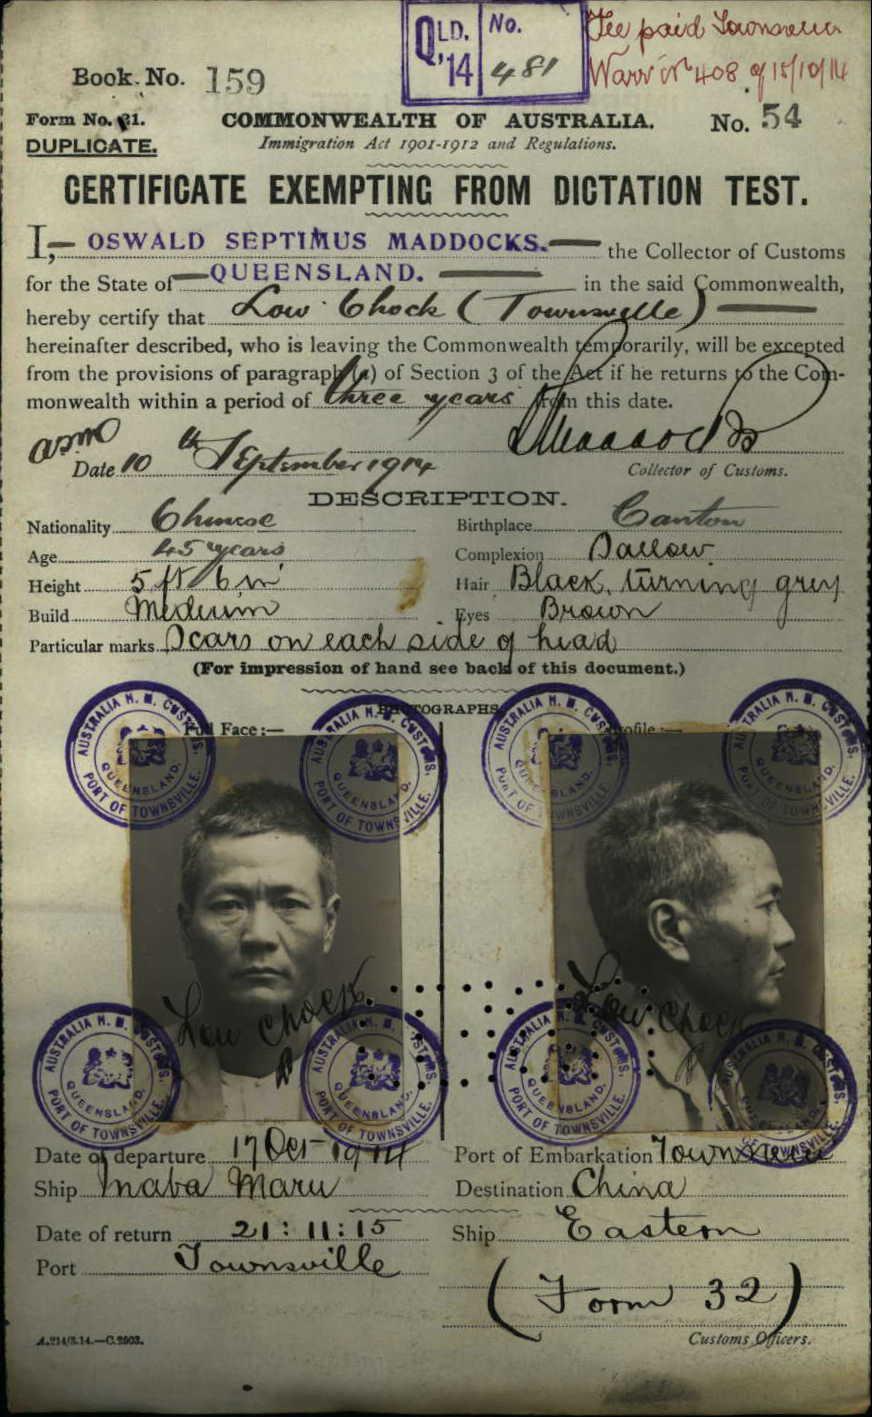 QLD. '14 No. 481
Fee paid Townsville
Warr't No 408 of 15/10/14
Book No. 159
Form No. 21.
COMMONWEALTH OF AUSTRALIA. No. 54
DUPLICATE.
Immigration Act 1901-1912 and Regulations.
CERTIFICATE EXEMPTING FROM DICTATION TEST.
I, OSWALD SEPTIMUS MADDOCKS. the Collector of Customs
for the State of QUEENSLAND. in the said Commonwealth,
hereby certify that Low Chock (Townsville)
hereinafter described, who is leaving the Commonwealth temporarily, will be excepted
from the provisions of paragraph (a) of Section 3 of the Act if he returns to the Com-
monwealth within a period of three years from this date.
Maddocks
Date 10th September 1914 Collector of Customs.
DESCRIPTION.
Nationality Chinese Birthplace Canton
Age 45 years Complexion Sallow
Height 5 ft 6 in Hair Black, turning grey
Build Medium Eyes Brown
Particular marks Scars on each side of head
(For impression of hand see back of this document.)
PHOTOGRAPHS
Full Face:— Profile:—
AUSTRALIA H. M. CUSTOMS. QUEENSLAND. PORT OF TOWNSVILLE.
AUSTRALIA H. M. CUSTOMS. QUEENSLAND. PORT OF TOWNSVILLE.
AUSTRALIA H. M. CUSTOMS. QUEENSLAND. PORT OF TOWNSVILLE.
AUSTRALIA H. M. CUSTOMS. QUEENSLAND. PORT OF TOWNSVILLE.
Low Chock
Low Chock
AUSTRALIA H. M. CUSTOMS. QUEENSLAND. PORT OF TOWNSVILLE.
AUSTRALIA H. M. CUSTOMS. QUEENSLAND. PORT OF TOWNSVILLE.
AUSTRALIA H. M. CUSTOMS. QUEENSLAND. PORT OF TOWNSVILLE.
AUSTRALIA H. M. CUSTOMS. QUEENSLAND. PORT OF TOWNSVILLE.
Date of departure 17 Oct 1914 Port of Embarkation Townsville
Ship Inaba Maru Destination China
Date of return 21:11:15 Ship Eastern
Port Townsville
(Form 32)
A.214/3.14.—C.2903. Customs Officers.